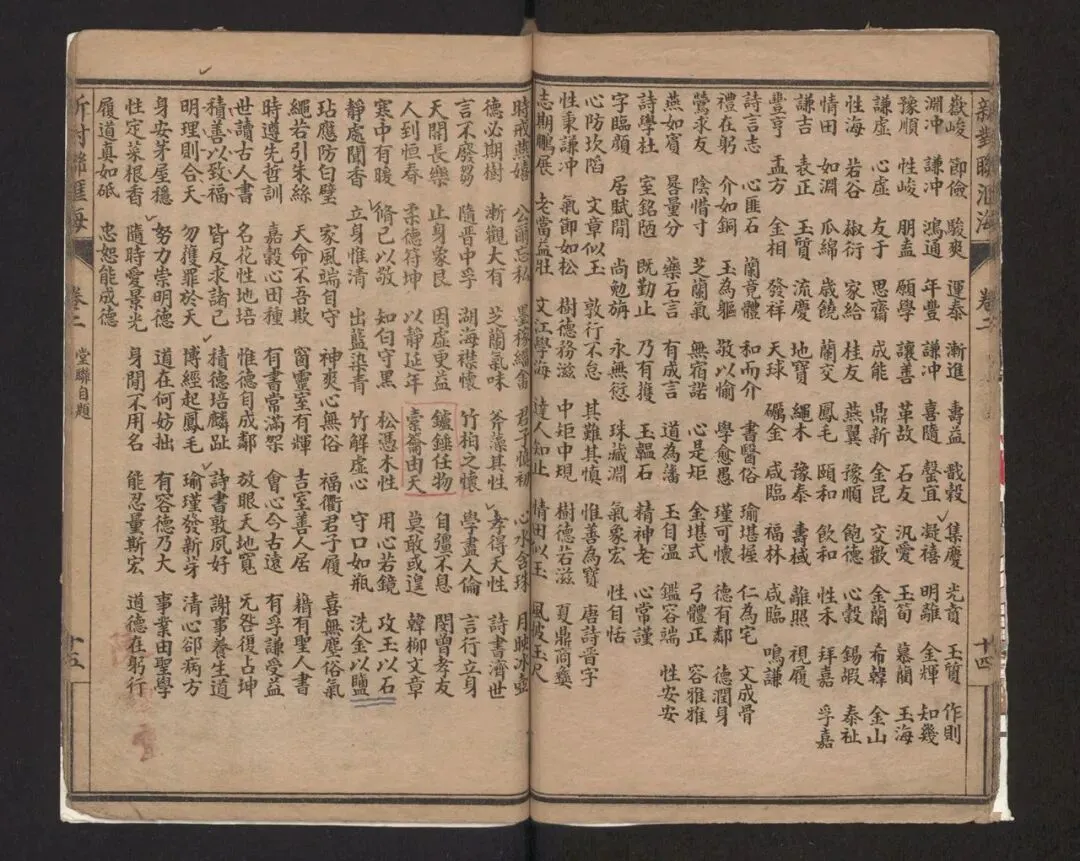 新對聯滙海 卷二 十四
嶽峻 節儉 駿爽 運泰 漸進 壽益 戩穀 集慶 光賁 玉質 作則
淵冲 謙冲 鴻通 年豐 謙冲 喜隨 罄宜 凝禧 明離 金輝 知幾
豫順 性峻 朋盍 願學 讓善 革故 石友 汎愛 玉筍 慕藺 玉海
謙虛 心虛 友于 思齋 成能 鼎新 金昆 交歡 金蘭 希韓 金山
性海 若谷 椒衍 家給 桂友 燕翼 豫順 飽德 心穀 錫嘏 泰祉
情田 如淵 瓜綿 歲饒 蘭交 鳳毛 頤和 飲和 性禾 拜嘉 孚嘉
謙吉 表正 玉質 流慶 地寶 繩木 豫泰 壽域 離照 視履
豐亨 盂方 金相 發祥 天球 礪金 咸臨 福林 咸臨 鳴謙
詩言志 心匪石 蘭竟體 和而介 書醫俗 瑜堪握 仁為宅 文成骨
禮在躬 介如銅 玉為軀 敬以愉 學愈愚 瑾可懷 德有鄰 德潤身
鶯求友 陰惜寸 芝蘭氣 無宿諾 心是矩 金堪式 弓體正 容雅雅
燕如賓 晷量分 藥石言 有成言 道為藩 玉自溫 鑑容端 性安安
詩學杜 室銘陋 既勤止 乃有獲 玉韞石 精神老 心常謹
字臨顏 居賦閒 尚勉旃 永無愆 珠藏淵 氣象宏 性自恬
心防坎陷 文章似玉 敦行不怠 其難其慎 惟善為寶 唐詩晉字
性秉謙冲 氣節如松 樹德務滋 中矩中規 樹德若滋 夏鼎商彝
志期鵬展 老當益壯 文江學海 達人知止 情田似玉
時戒燕嬉 公爾忘私 墨稼 君子慎初 心水含珠 月映冰壺
德必期樹 漸觀大有 芝蘭氣味 斧藻其性 孝得天性 詩書濟世
言不廢芻 隨晋中孚 湖海襟懷 竹柏之懷 學盡人倫 言行立身
天開長樂 止身家艮 因虛更益 鑪錘任物 自彊不息 閔曾孝友
人到恒春 柔德符坤 以靜延年 橐籥由天 莫敢或遑 韓柳文章
寒中有暖 脩己以敬 知白守黑 松憑木性 用心若鏡 攻玉以石
靜處聞香 立身惟清 出藍染青 竹解虛心 守口如瓶 洗金以鹽
玷應防白璧 家風端自守 神爽心無俗 福衢君子履 喜無塵俗氣
繩若引朱絲 天命不吾欺 窗靈室有輝 吉室善人居 藉有聖人書
時遵先哲訓 嘉穀心田種 有書常滿架 會心今古遠 有孚謙受益
世讀古人書 名花性地培 惟德自成鄰 放眼天地寬 无咎復占坤
積善以致福 皆反求諸己 積德培麟趾 詩書敦夙好 謝事養生道
明理則合天 勿獲罪於天 博經起鳳毛 瑜瑾發新芽 清心郤病方
身安茅屋穩 努力崇明德 道在何妨拙 有容德乃大 事業由聖學
性定菜根香 隨時愛景光 身閒不用名 能忍量斯宏 道德在躬行
履道真如砥 忠恕能成德
新對聯滙海 卷二 堂聯自題 十五